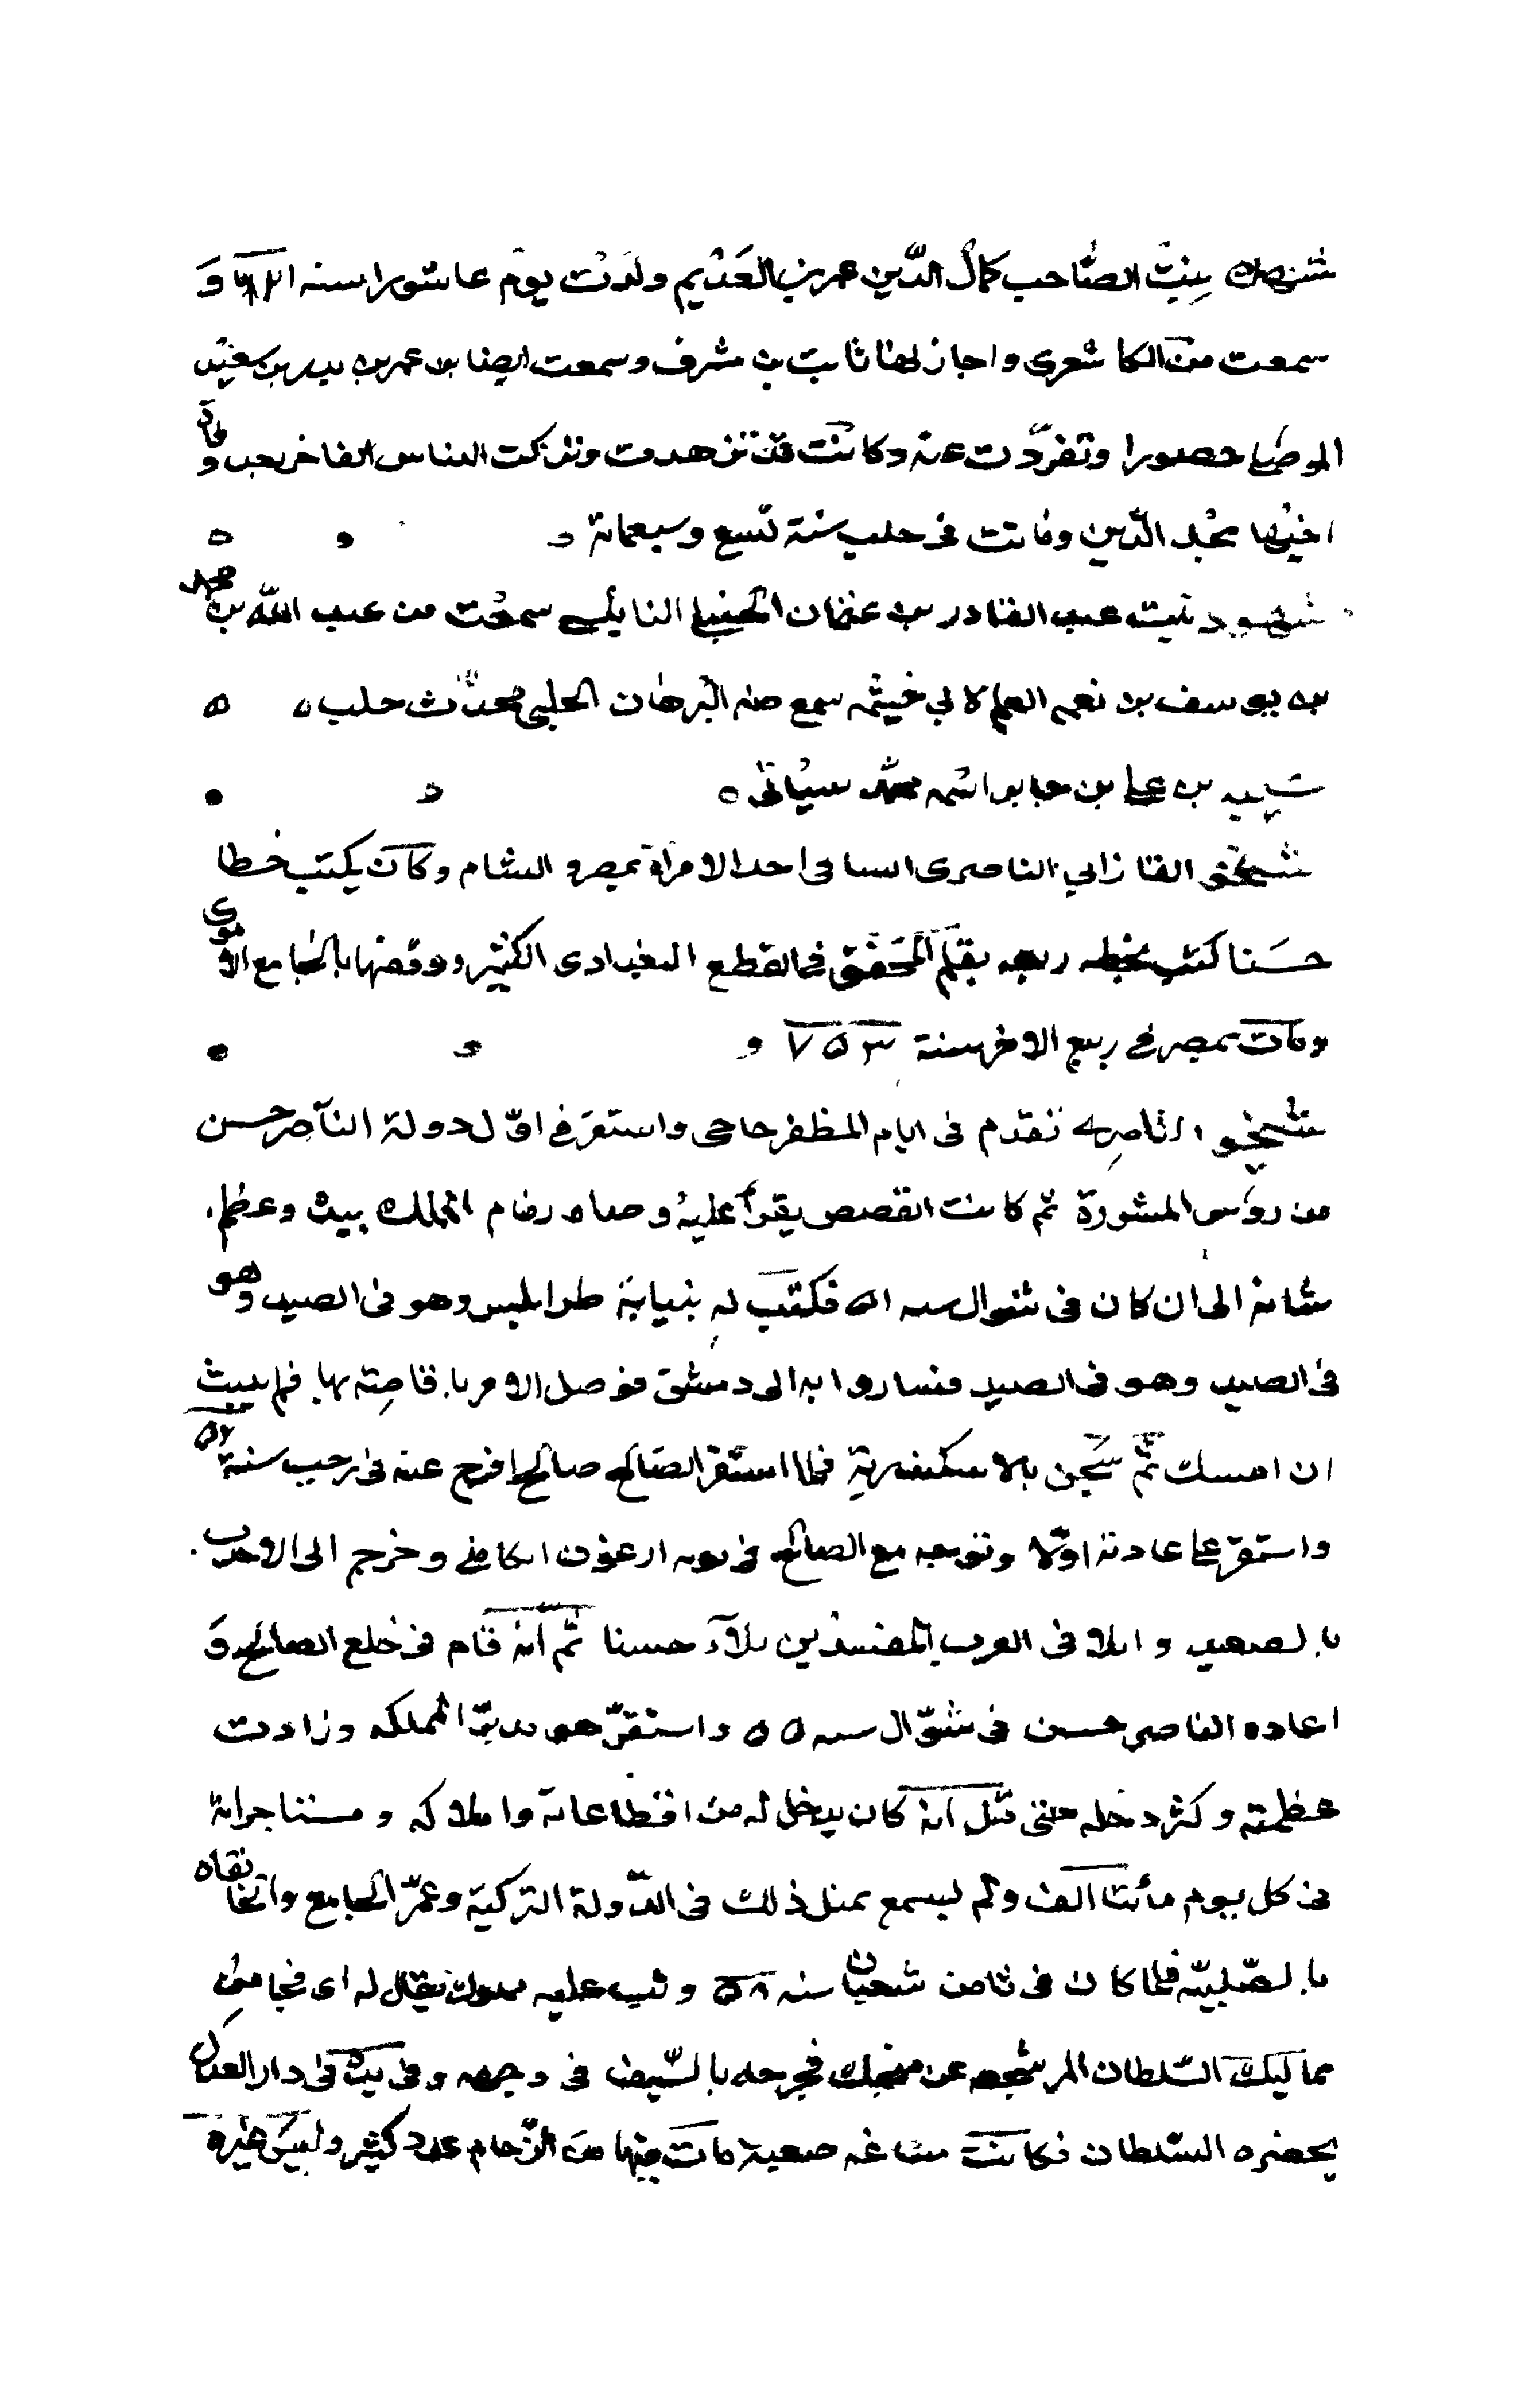 شهدة بنت الصاحب كمال الدين عمر بن العديم ولدت يوم عاشورا سنه و
سمعت من الكاشغرى واجاز لها ثابت بن مشرف وسمعت ايضا من عمر بن بدر بن سعيد
الموصلى حضورا وتفردت عنه وكانت قد تزهدت وتركت اللباس الفاخر بعد وفاة
اخيها مجد الدين وماتت فى حلب سنة تسع وسبعمائة
شهود بنت عبد القادر بن عثمان الحنبلي النابلسي سمعت من عبد الله بن محمد
بن يوسف بن نعمه سمع منه البرهان الحلبى محدث حلب
بن على بن اسمه محمد سياتى
شيخو الناصرى الساقى احد الامراء بمصر و الشام وكان يكتب خطا
حسنا كتب بخطه ربعه بقلم المحقق فى القطع البغدادى الكبير ووقفها بالجامع الاموى
ومات بمصر في ربيع الاخر سنة ٧٥٣
شيخو الناصرى تقدم فى ايام المظفر حاجى واستقر في اول دولة الناصر حسن
من رؤس المشورة ثم كانت القصص يقرأ عليه وصار زمام الملك بيده وعظم
شانه الى ان كان فى شوال سنه ٥١ فكتب له بنيابة طرابلس وهو فى الصيد وهو
فى الصيد وهو فى الصيد فساروا به الى دمشق فوصل الامر باقامته بها فلم يلبث
ان امسك ثم سجن بالاسكندرية فلما استقر الصالح صالح افرج عنه فى رجب سنة ٥٢
واستقر على عادته اولا وتوجه مع الصالح فى ارغون الكاملي وخرج الى الاحدب
بالصعيد وابلا فى العرب المفسدين بلاء حسنا ثم انه قام فى خلع الصالح و
اعاده الناصر حسن فى شوال سنه ٥٥ واستقر هو مدبر المملكه وزادت
عظمته وكثر دخله حتى قيل انه كان يدخل له من اقطاعاته واملاكه ومستاجراته
فى كل يوم مائتا الف ولم يسمع بمثل ذلك فى الدولة التركية وعمر الجامع والخانقاه
بالصليبه فلما كان فى ثامن شعبان سنه ٥٨ وثب عليه مملوك يقال له اى قجا من
مماليك السلطان المرتجعه عن منجك فجرحه بالسيف فى وجهه وفى يده فى دار العدل
بحضره السلطان فكانت ساعه صعبة مات فيها من الزحام عدد كثير وليس غيره